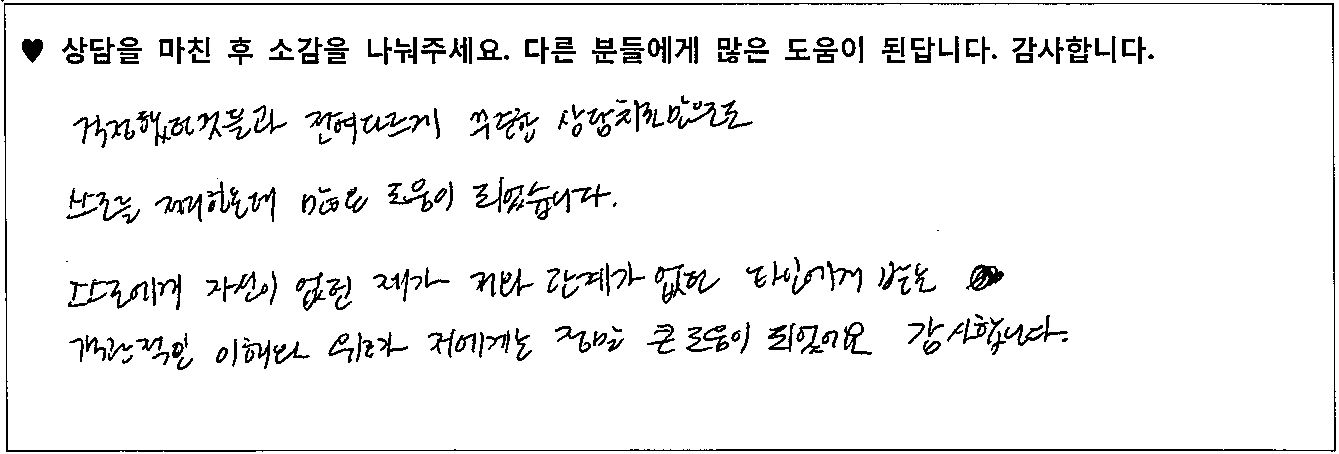 ♥ 상담을 마친 후 소감을 나눠주세요. 다른 분들에게 많은 도움이 된답니다. 감사합니다.
걱정했던것들과 전혀다르게 꾸준한 상담치료만으로도
스스로를 정리하는데 많은 도움이 되었습니다.
스스로에게 자신이 없던 제가 저와 관계가 없던 타인에게 받는
객관적인 이해와 위로가 저에게는 정말 큰 도움이 되었어요 감사합니다.